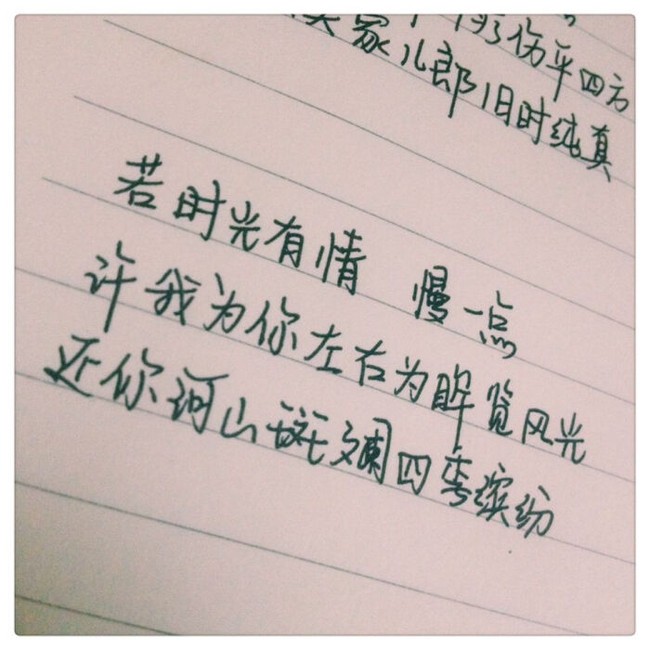 伤平四方
家儿郎旧时纯真
若时光有情 慢一点
许我为你左右为眸览风光
还你河山斑斓四缤纷